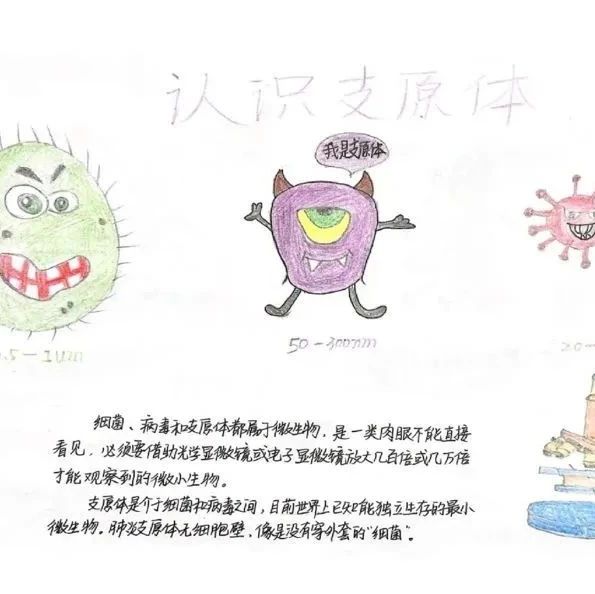 认识支原体
我是支原体
0.5-1um
50-300nm
20-
细菌、病毒和支原体都属于微生物，是一类肉眼不能直接
看见，必须要借助光学显微镜或电子显微镜放大几百倍或几万倍
才能观察到的微小生物。
支原体是介于细菌和病毒之间，目前世界上已知能独立生存的最小
微生物。肺炎支原体无细胞壁，像是没有穿外套的"细菌"。